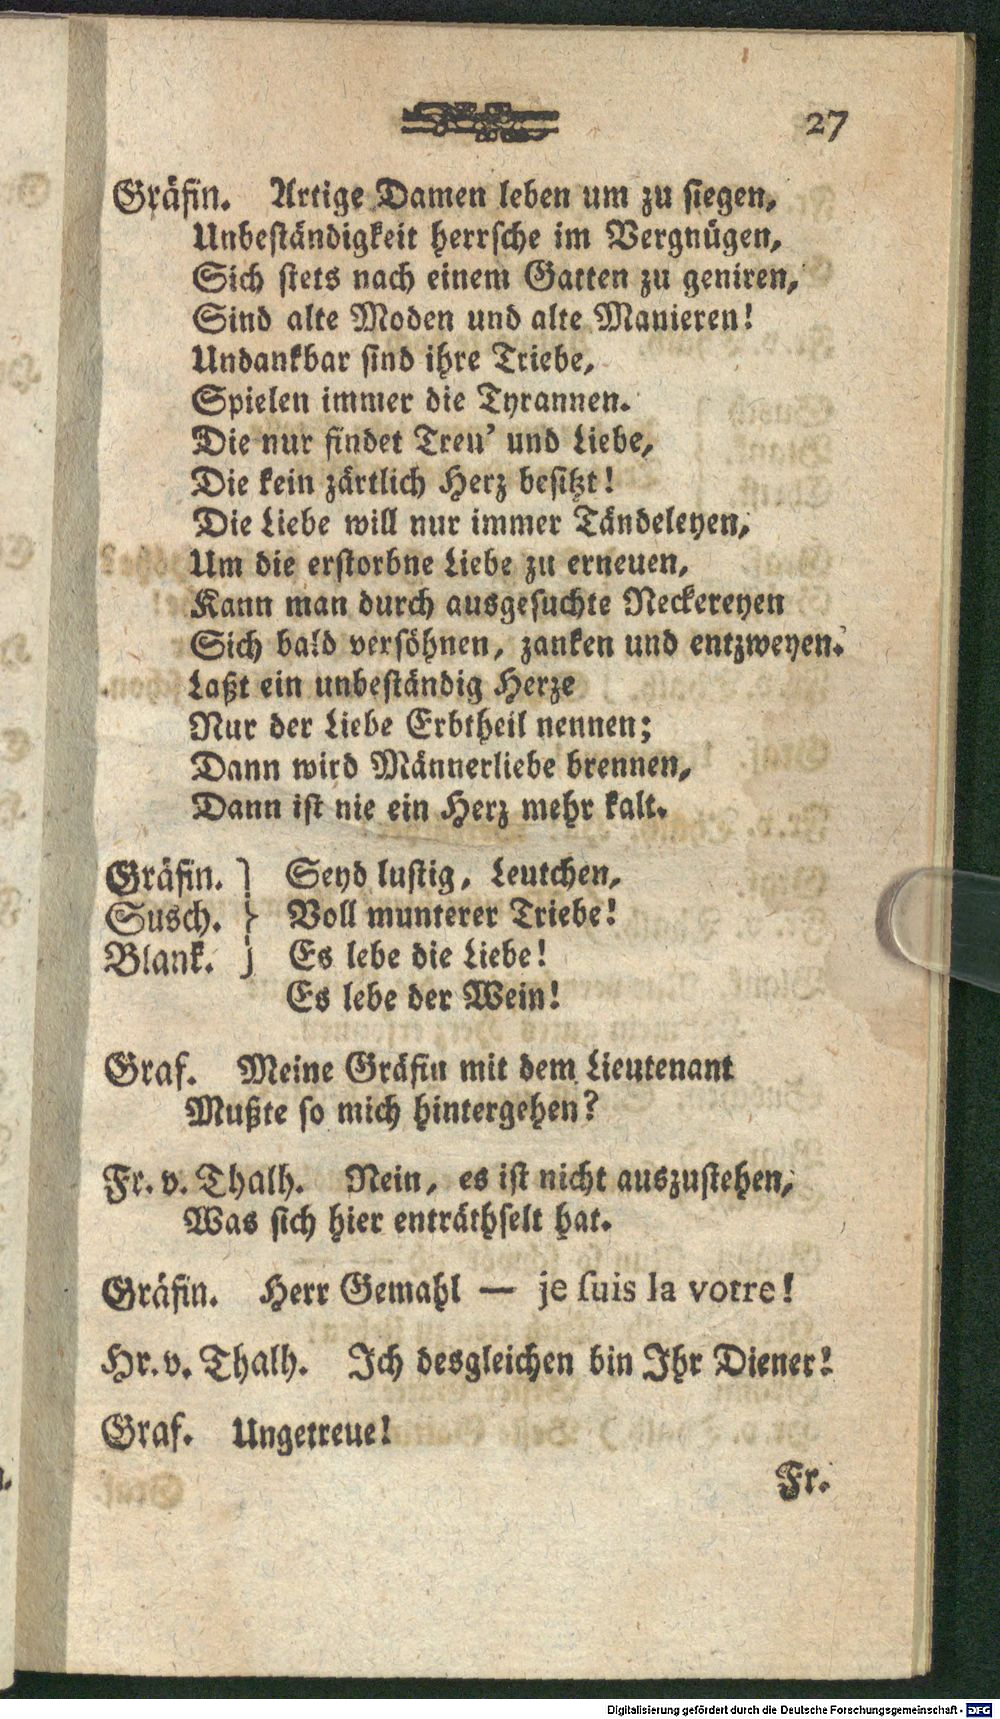 27
Gräfin. Artige Damen leben um zu siegen,
Unbeständigkeit herrsche im Vergnügen,
Sich stets nach einem Gatten zu geniren,
Sind alte Moden und alte Manieren!
Undankbar sind ihre Triebe,
Spielen immer die Tyrannen.
Die nur findet Treu' und Liebe,
Die kein zärtlich Herz besitzt!
Die Liebe will nur immer Tändeleyen,
Um die erstorbne Liebe zu erneuen,
Kann man durch ausgesuchte Neckereyen
Sich bald versöhnen, zanken und entzweyen.
Laßt ein unbeständig Herze
Nur der Liebe Erbtheil nennen;
Dann wird Männerliebe brennen,
Dann ist nie ein Herz mehr kalt.
Gräfin. } Seyd lustig, Leutchen,
Susch. } Voll munterer Triebe!
Blank. } Es lebe die Liebe!
Es lebe der Wein!
Graf. Meine Gräfin mit dem Lieutenant
Mußte so mich hintergehen?
Fr. v. Thalh. Nein, es ist nicht auszustehen,
Was sich hier enträthselt hat.
Gräfin. Herr Gemahl — je suis la votre!
Hr. v. Thalh. Ich desgleichen bin Ihr Diener!
Graf. Ungetreue!
Fr.
Digitalisierung gefördert durch die Deutsche Forschungsgemeinschaft - DFG